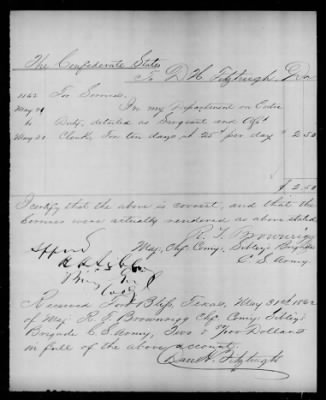 The Confederate States
To D H Fitzhugh, Dr
1862 For Services
May 21 In my department on Extra
to Duty, detailed as Sergeant and
May 31 Clerk, For ten days at 25¢ per day $ 2.50
$ 2.50
I certify that the above is correct, and that the
Services were actually rendered as above stated
R. T. Brownrigg
Maj. Chf Comy. Sibleys Brigade
C S Army
Approved
H H Sibley
Brig Genl
Received Fort Bliss, Texas, May 31st 1862
of Maj. R. T. Brownrigg Chf Comy. Sibleys
Brigade C S Army, Two & 50/100 Dollars
in full of the above account.
H. Fitzhugh